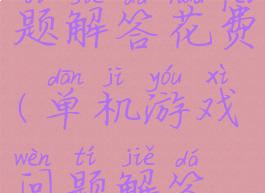 题解答花费
dān jī yóu xì
(单机游戏
wèn tí jiě dá
问题解答